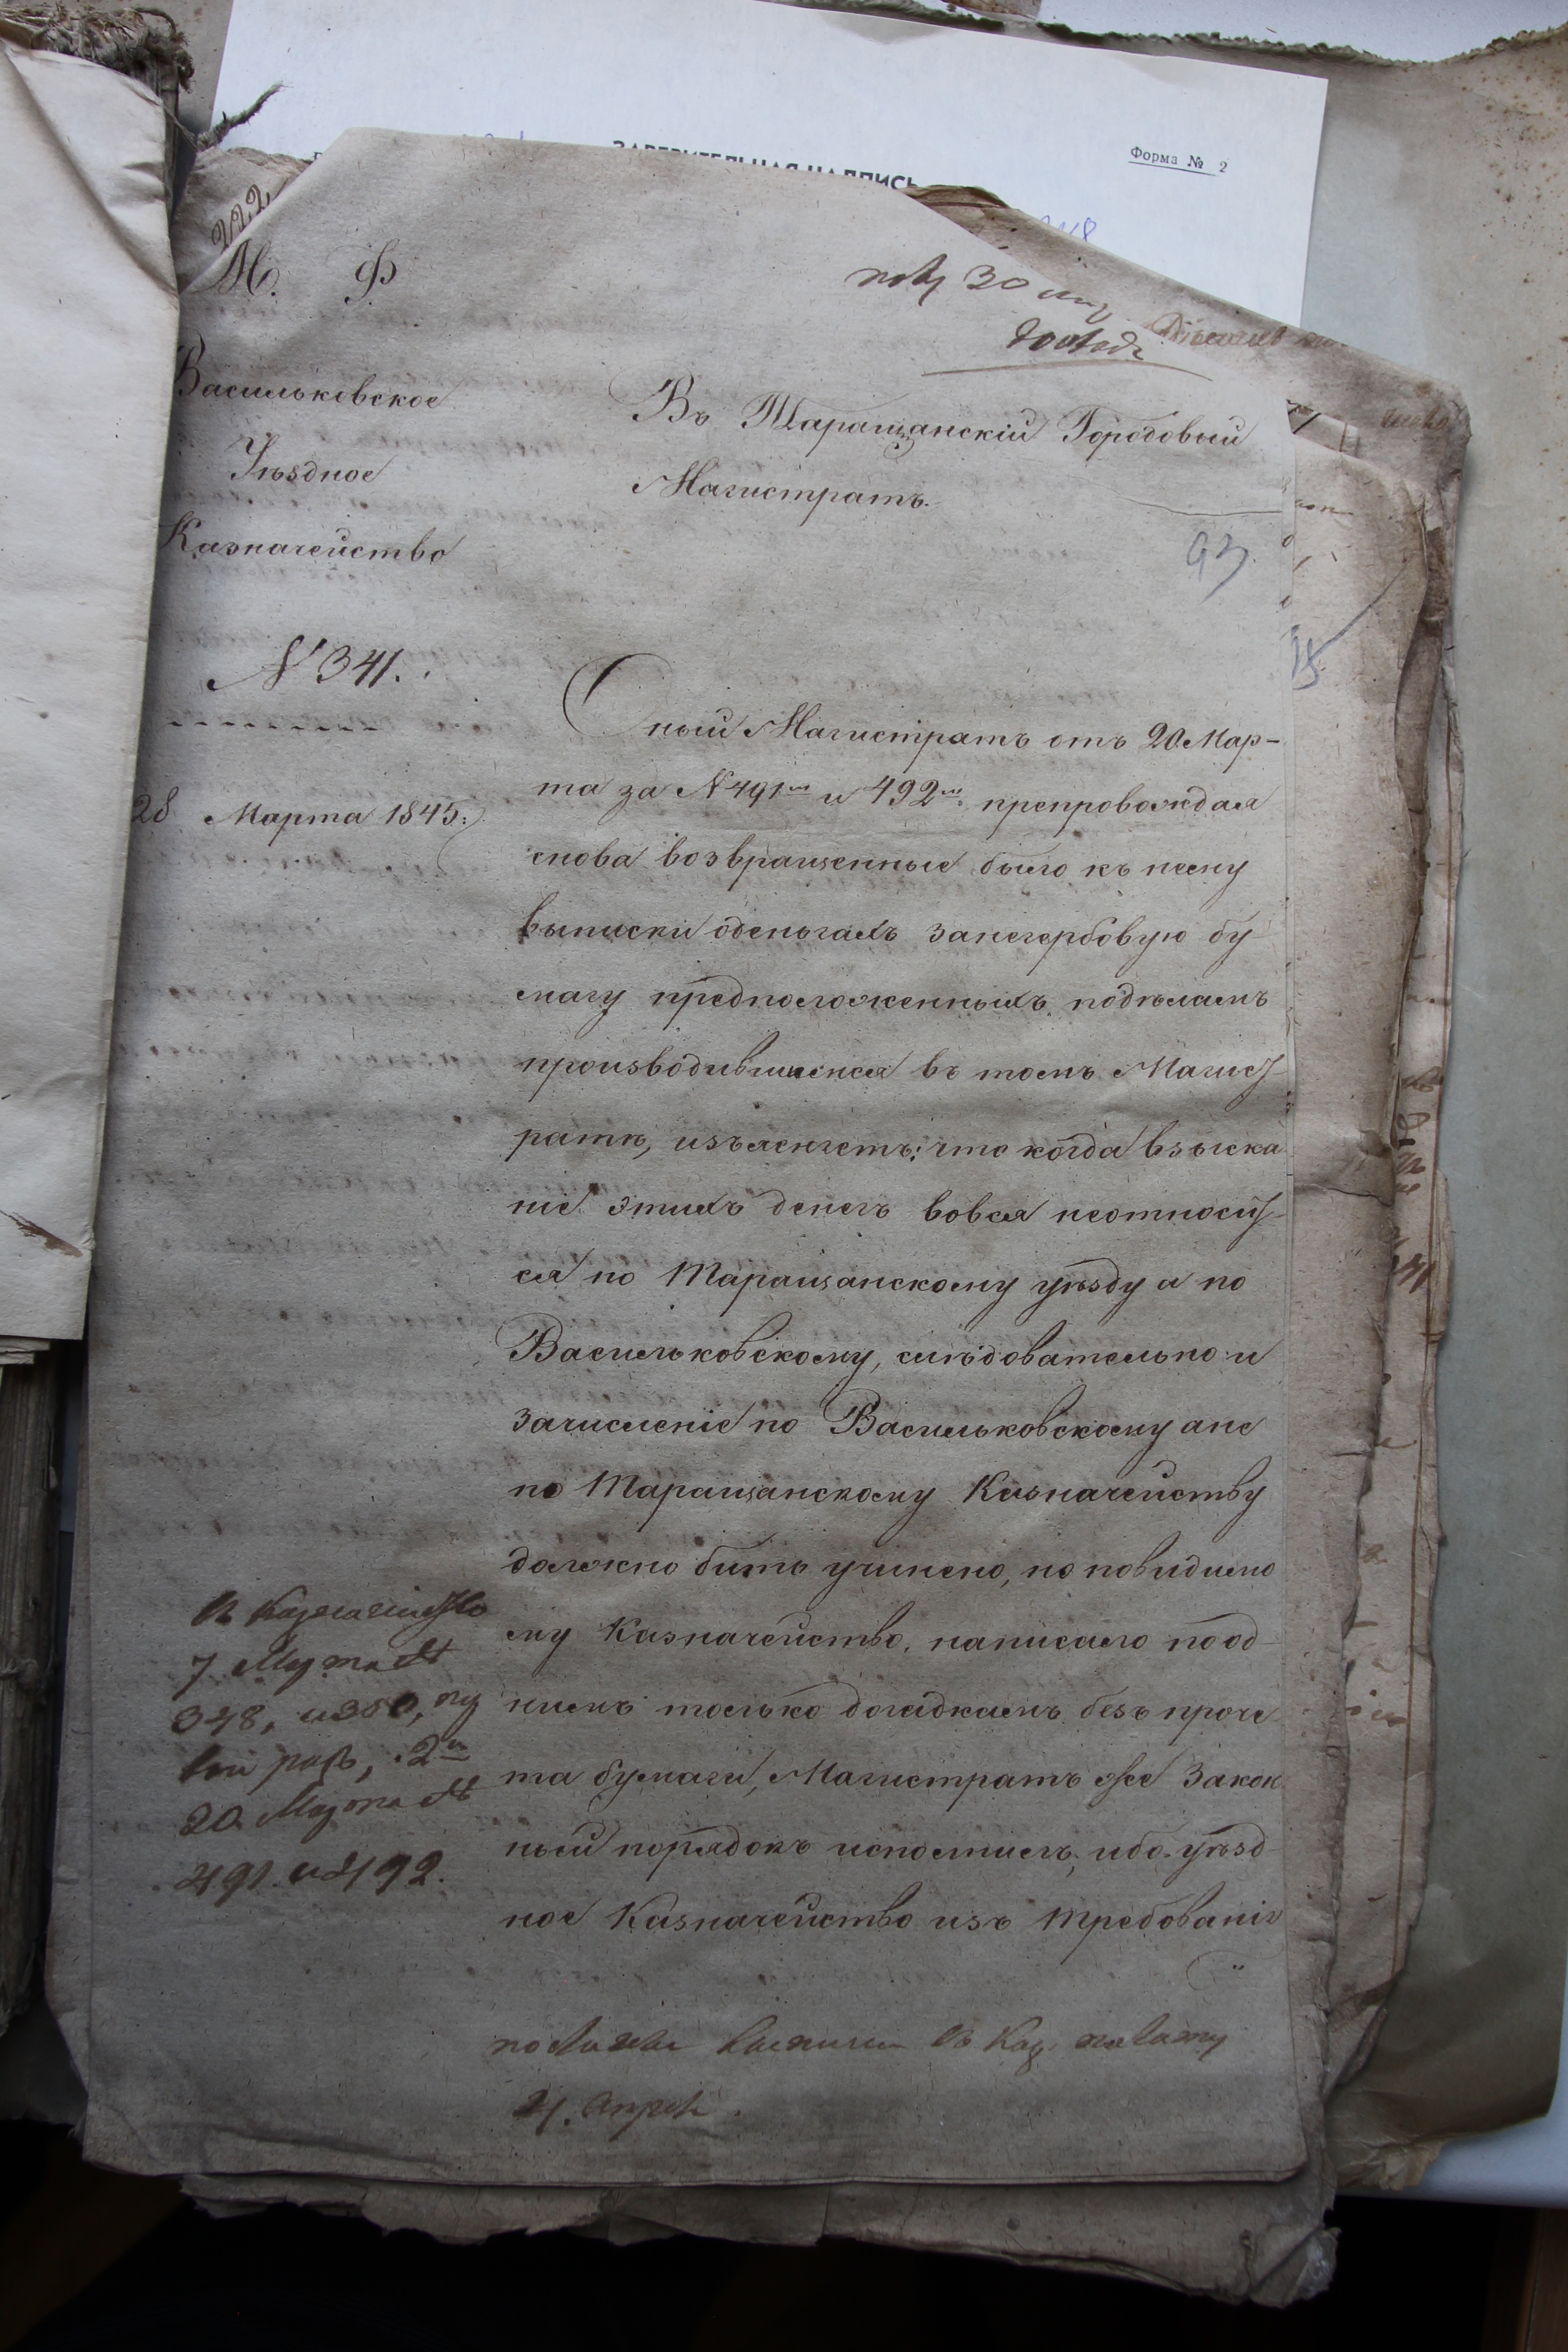 ЗАВЕРИТЕЛЬНАЯ НАДПИСЬ
Форма № 2
222
М. Ф.
пол 30 мар
доклад
Васильковское
Уѣздное
Казначейство
Въ Таращанскій Городовый
Магистратъ.
93.
N 341.
28 Марта 1845:
Оный Магистратъ отъ 20 Мар-
та за N 491м и 492м. препровождая
снова возвращенные было къ нему
выписки оденьгахъ занегербовую бу-
магу предположенныхъ, подѣламъ
производившимся въ томъ Магист-
ратѣ, изъясняетъ: что когда взыска
ніе этихъ денегъ вовся неотносит-
ся по Таращанскому уѣзду а по
Васильковскому, слѣдовательно и
зачисленіе по Васильковскому ане
по Таращанскому Казначейству
должно бить учинено, но повидимо
му Казначейство, написало поод-
нимъ только догадкамъ безъ проче-
та бумаги, Магистратъ же Закон
ный порядокъ исполнилъ, ибо уѣзд-
ное Казначейство изъ требованія
Въ Казначейство
7 Марта №
348, и 350, пер
вый разъ, 2й
20 Марта №
491 и 492.
выписки въ Каз. палату
21. Апрел.